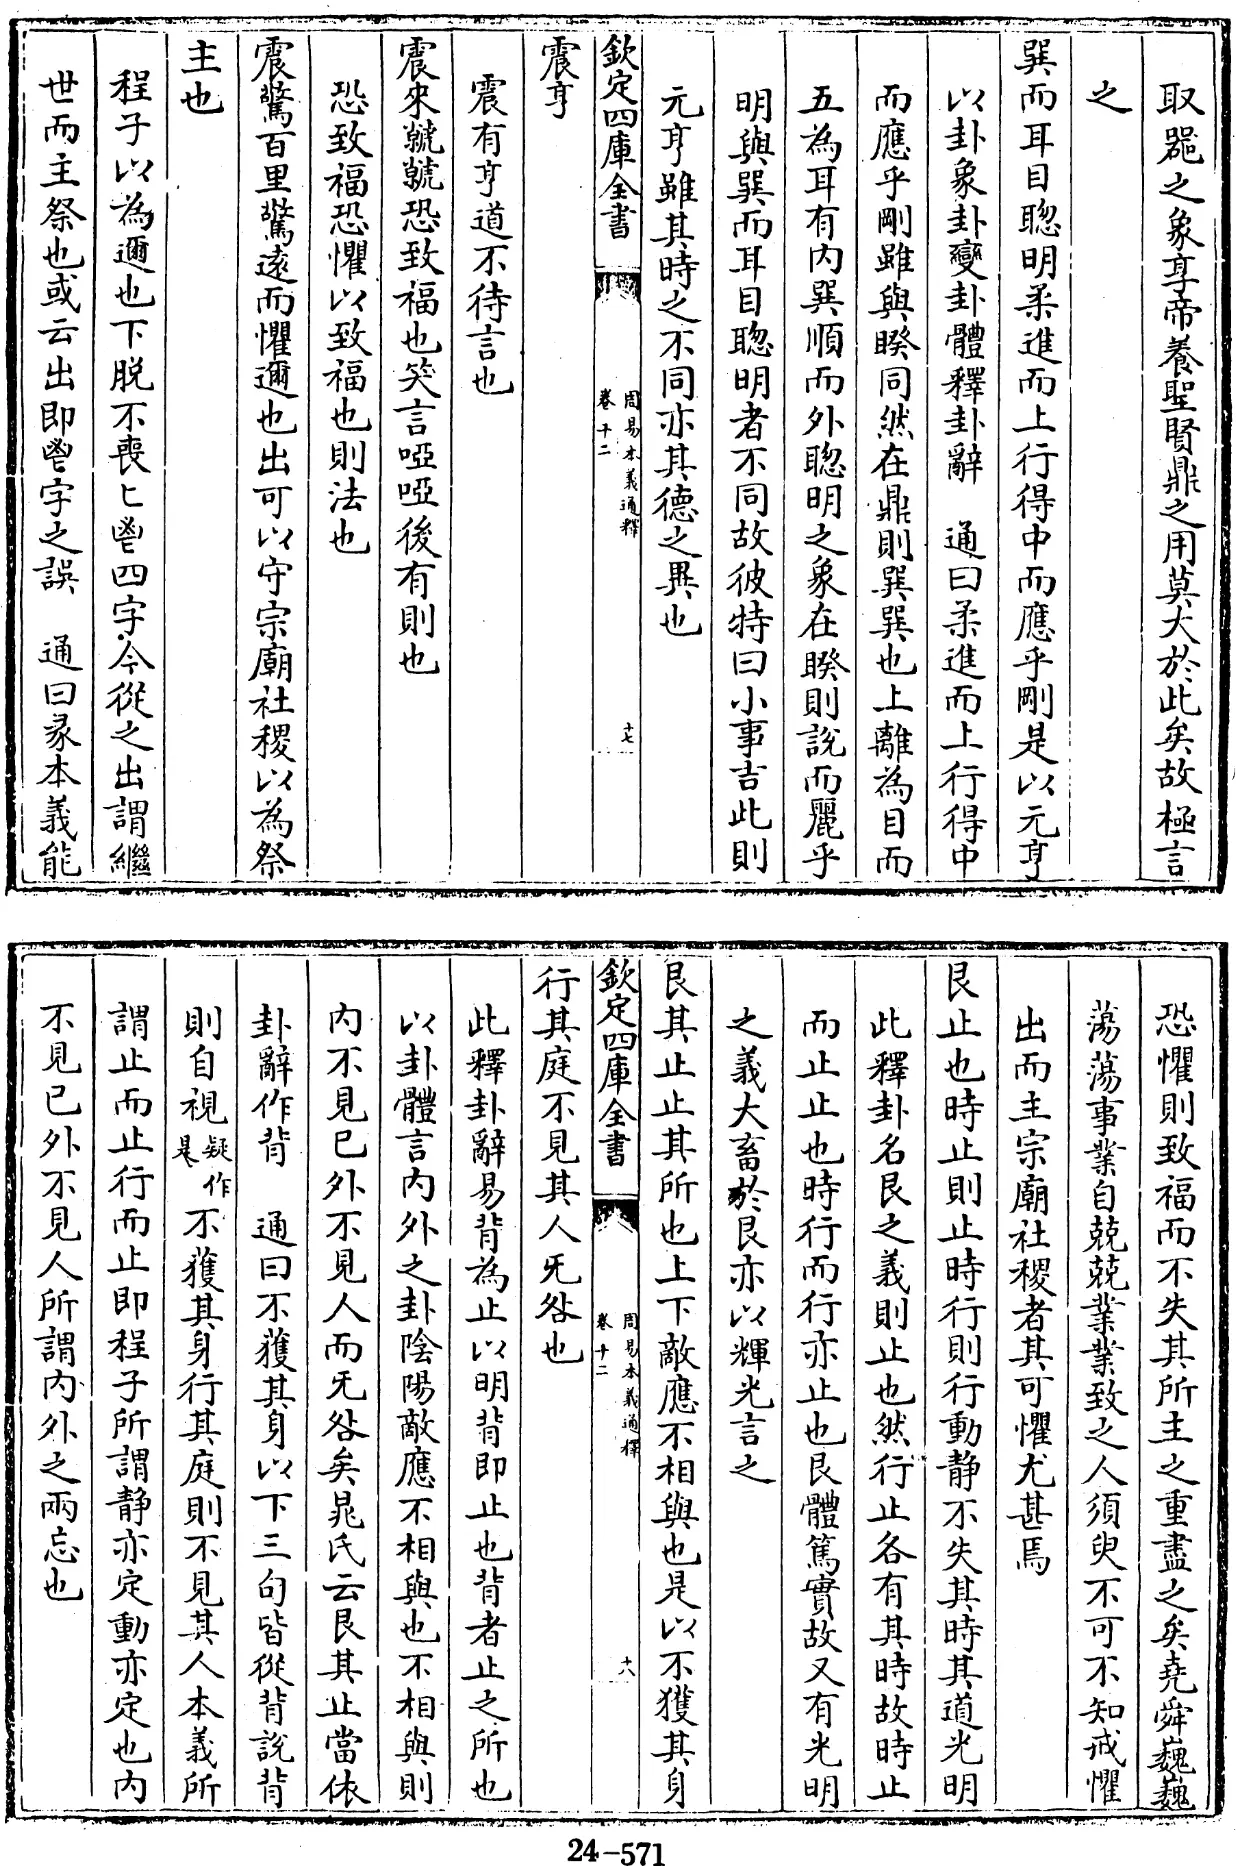 取器之象享帝養聖賢鼎之用莫大於此矣故極言
之
巽而耳目聰明柔進而上行得中而應乎剛是以元亨
以卦象卦變卦體釋卦辭　通曰柔進而上行得中
而應乎剛雖與睽同然在鼎則巽巽也上離為目而
五為耳有内巽順而外聰明之象在睽則說而麗乎
明與巽而耳目聰明者不同故彼特曰小事吉此則
元亨雖其時之不同亦其德之異也
欽定四庫全書
周易本義通釋
卷十二
十七
震亨
震有亨道不待言也
震來虩虩恐致福也笑言啞啞後有則也
恐致福恐懼以致福也則法也
震驚百里驚遠而懼邇也出可以守宗廟社稷以為祭
主也
程子以為邇也下脱不喪匕鬯四字今從之出謂繼
世而主祭也或云出即鬯字之誤　通曰彖本義能
恐懼則致福而不失其所主之重盡之矣堯舜巍巍
蕩蕩事業自兢兢業業致之人須臾不可不知戒懼
出而主宗廟社稷者其可懼尤甚焉
艮止也時止則止時行則行動静不失其時其道光明
此釋卦名艮之義則止也然行止各有其時故時止
而止止也時行而行亦止也艮體篤實故又有光明
之義大畜於艮亦以輝光言之
艮其止止其所也上下敵應不相與也是以不獲其身
欽定四庫全書
周易本義通釋
卷十二
十八
行其庭不見其人无咎也
此釋卦辭易背為止以明背即止也背者止之所也
以卦體言内外之卦陰陽敵應不相與也不相與則
内不見己外不見人而无咎矣晁氏云艮其止當依
卦辭作背　通曰不獲其身以下三句皆從背說背
則自視疑作是不獲其身行其庭則不見其人本義所
謂止而止行而止即程子所謂静亦定動亦定也内
不見己外不見人所謂内外之兩忘也
24-571